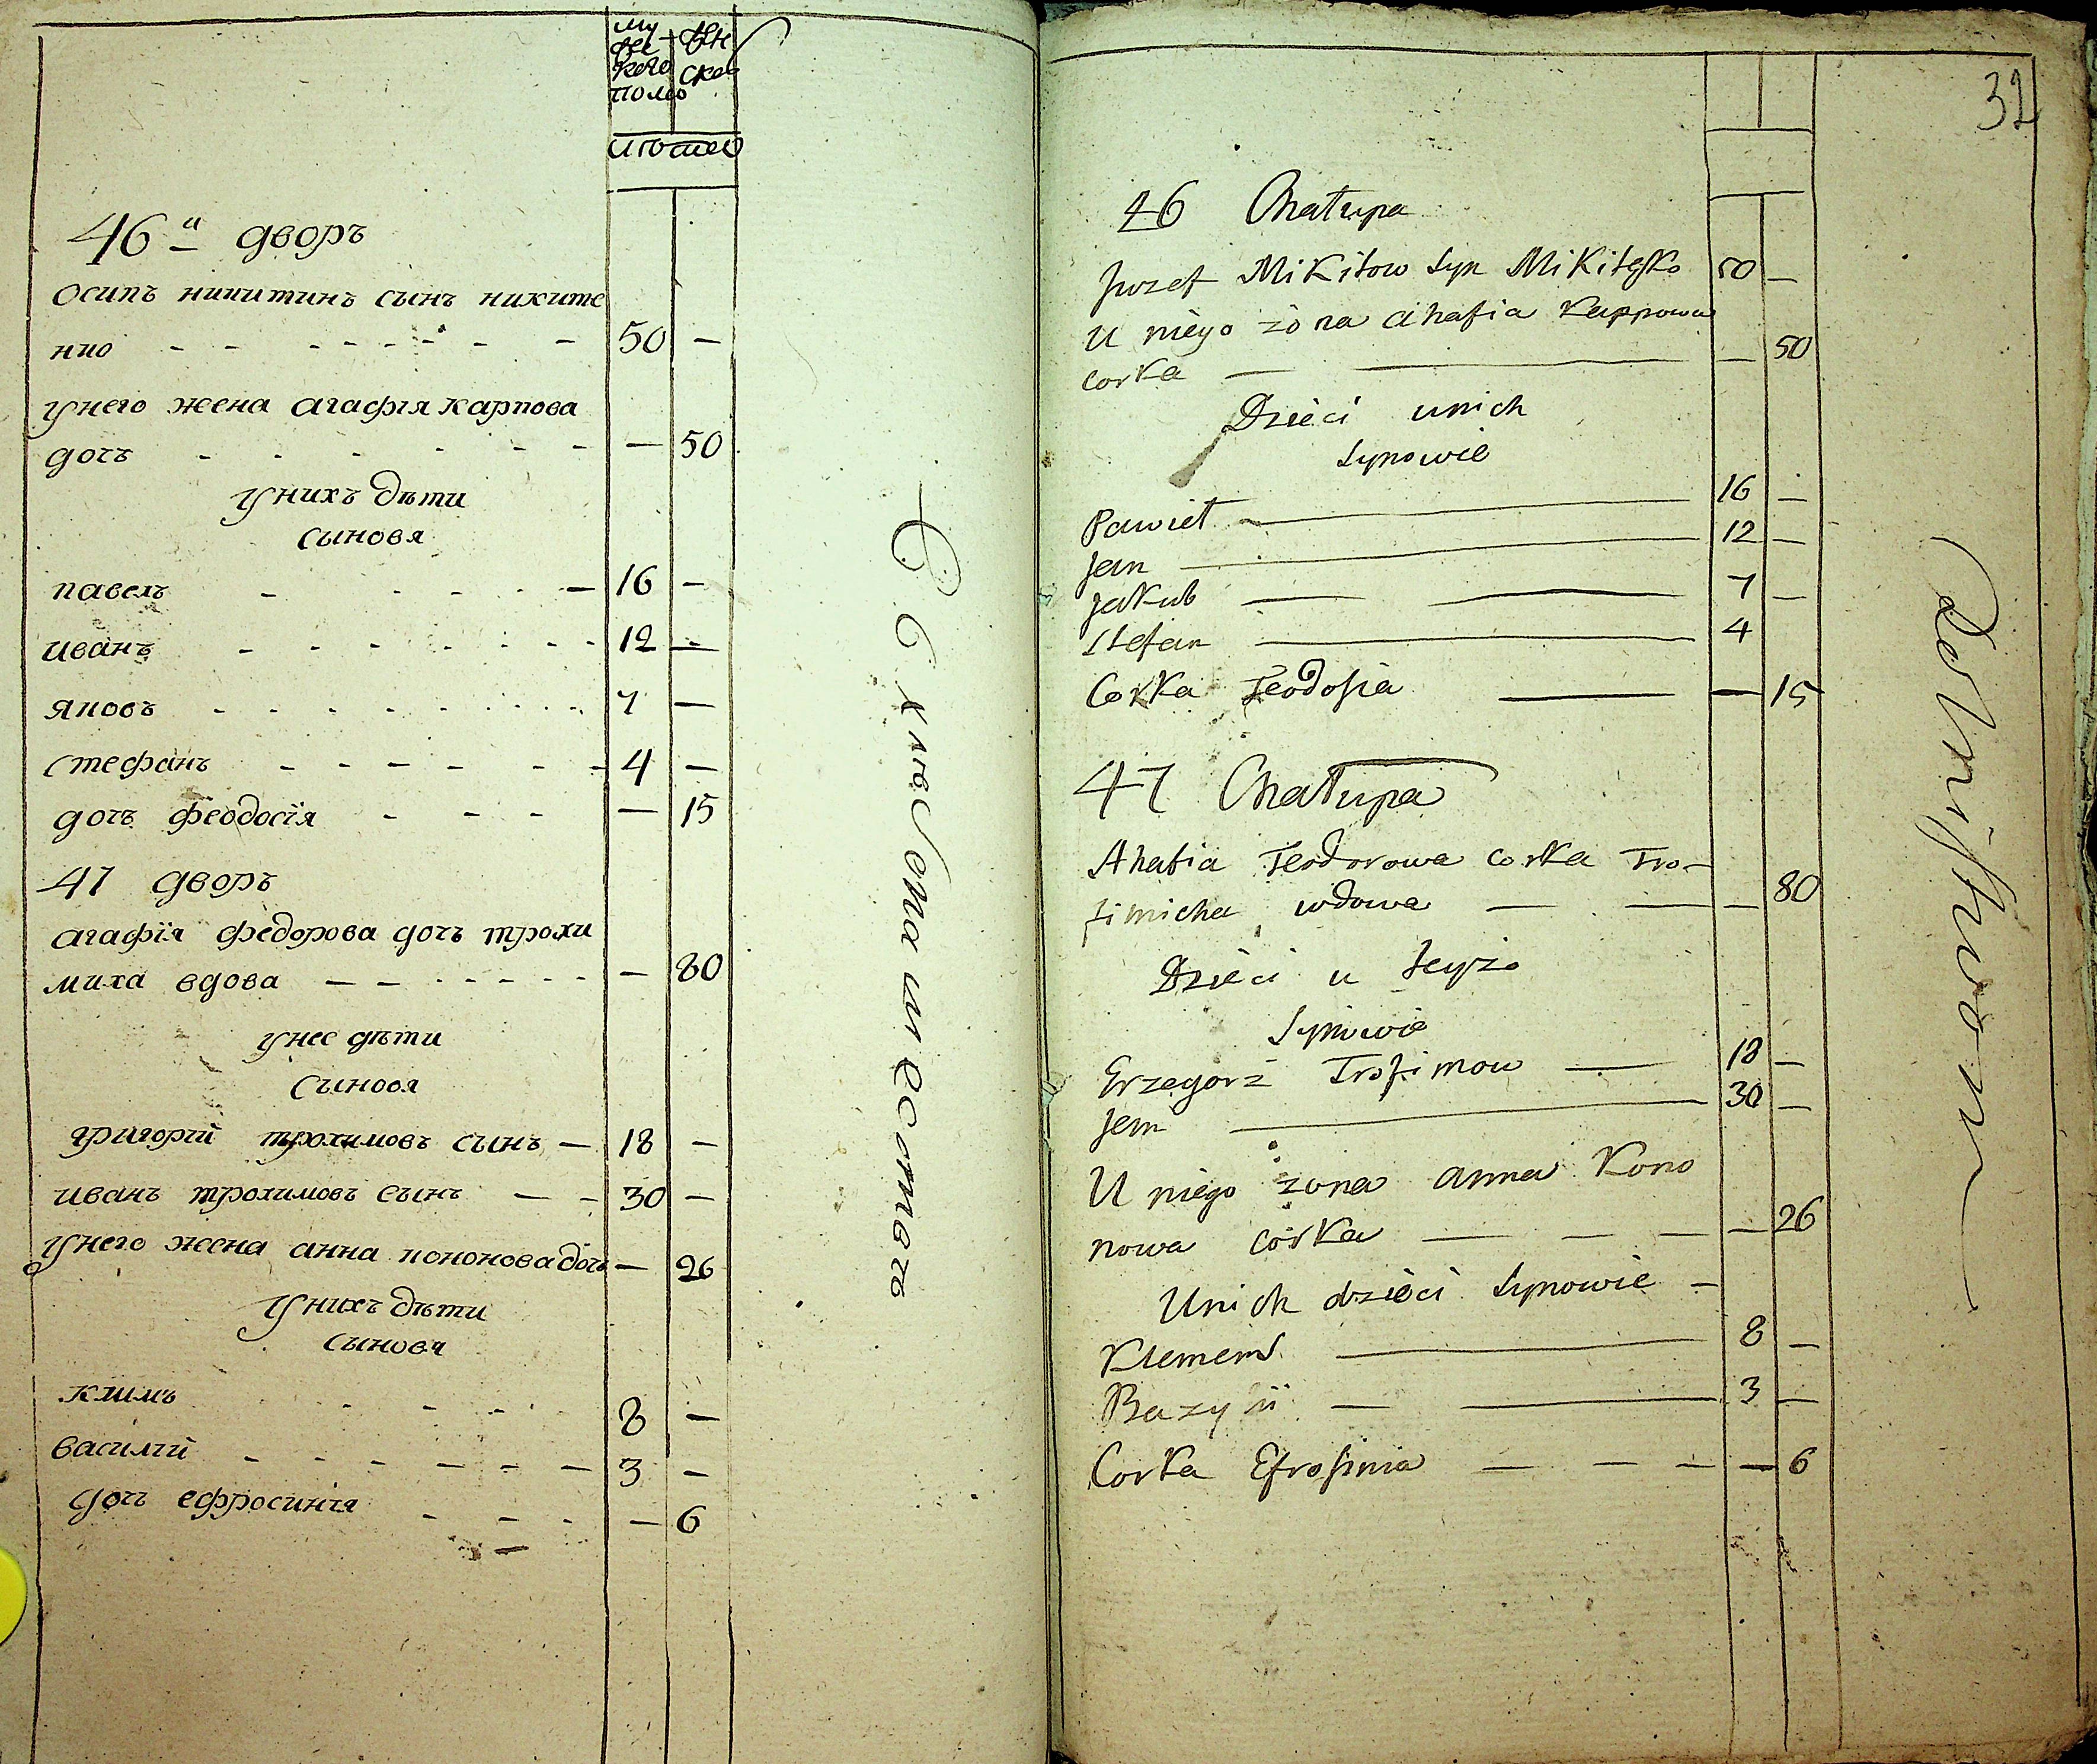 му
жес
кого
полю
жен
ское
число
46й дворъ
Осипъ никитинъ сынъ никите
нко - - - - - - - - 50 -
унего жена агафия карпова
дочь - - - - - - - 50
унихъ дѣти
сыновя
павелъ - - - - - 16 -
иванъ - - - - - - - 12 -
яковъ - - - - - - - - 7 -
стефанъ - - - - - - 4 -
дочъ феодосїя - - - - 15
47 дворъ
агафїя федорова дочъ трохи
миха вдова - - - - - - - - 80
унее дѣти
сыновя
григорий трохимовъ сынъ - 18 -
иванъ трохимовъ сынъ - - 30 -
унего жена анна кононова дочь - 26
унихъ дѣти
сыновя
климъ - - - - 8 -
василий - - - - - - 3 -
дочъ ефросиния - - - - 6
32
46 Chałupa
Juzef Mikitow Syn Mikitęko 50 -
U niego żona Ahafia Karpowa
corka - - - 50
Dzieci unich
Synowie
Paweł - 16 -
Jan - 12 -
Jakub - - 7 -
Stefan - 4
Corka Teodosia - - 15
47 Chałupa
Ahafia Teodorowa corka Tro-
fimicha wdowa - - - 80
Dzieci u teyże
Synowie
Grzegorz Trofimow - 18 -
Jan - 30 -
U niego żona anna Kono
nowa corka - - - - 26
Unich dzieci Synowie -
Klemens - 8 -
Bazylii - - 3 -
Corka Efrosinia - - - - 6